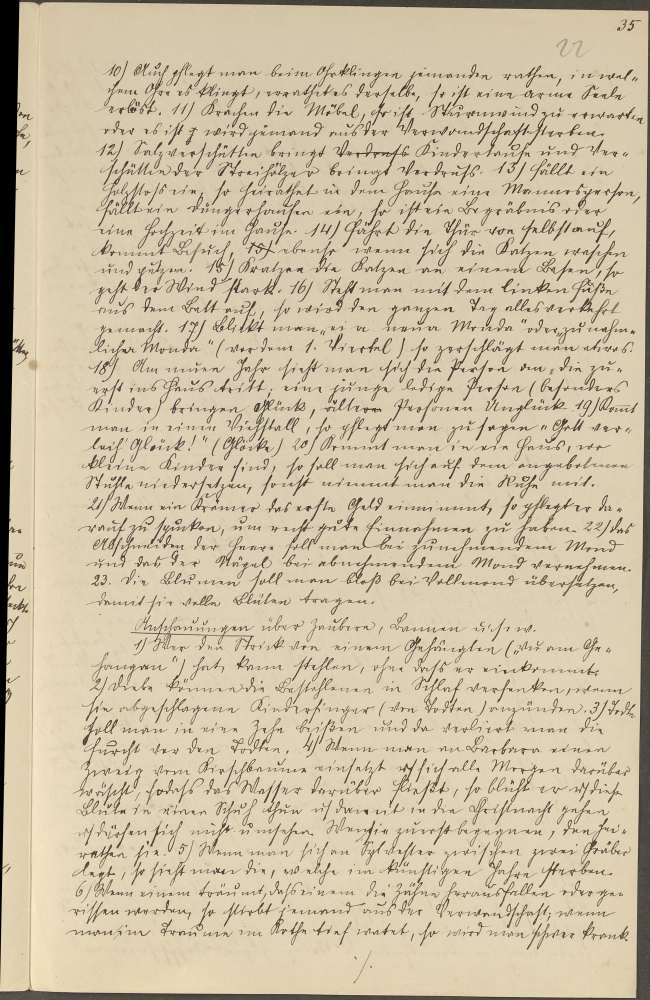 35
22
10) Auch pflegt man beim Ohrklingen jemanden rathen, in wel-
chem Ohre es klingt, errathet es derselbe, so ist eine arme Seele
erlöst. 11) Krachen die Möbel, so ist Sturmwind zu erwarten
oder es ist wird jemand aus der Verwandschaft sterben.
12) Salzverschütten bringt Verdruß Kindertaufe und Ver-
schütten der Streichhölzer bringt Verdruß. 13) Fällt ein
Holzstoß ein, so heirathet in dem Hause eine Mannsperson,
fällt ein Düngerhaufen ein, so ist ein Begräbnis oder
eine Hochzeit im Hause. 14) Fährt die Thür von selbst auf,
kommt Besuch, 15) ebenso wenn sich die Katzen waschen
und putzen. 15) Kratzen die Katzen an einem Besen, so
geht der Wind stark. 16) Steht man mit dem linken Fuße
aus dem Bett auf, so wird den ganzen Tag alles verkehrt
gemacht. 17) Blickt man "ei a neua Monda" oder "zunahm-
licha Monda" (vor dem 1. Viertel) so zerschlägt man etwas.
18) Am neuen Jahr sieht man sich die Person an, die zu-
erst ins Haus tritt; eine junge ledige Person (besonders
Kinder) bringen Glück, ältere Personen Unglück. 19) Kommt
man in einen Viehstall, so pflegt man zu sagen "Gott ver-
leih' Glück!" (Glöcke) 20) Kommt man in ein Haus, wo
kleine Kinder sind, so soll man sich auf dem angebotenen
Stuhle niedersetzen, sonst nimmt man die Ruhe mit.
21) Wenn ein Krämer das erste Geld einnimmt, so pflegt er da-
rauf zu spucken, um recht gute Einnahmen zu haben. 22) Das
Abschneiden der Haare soll man bei zunehmendem Mond
und das der Nägel bei abnehmendem Mond vernehmen.
23. Die Blumen soll man bloß bei Vollmond übersetzen,
damit sie volle Blüten tragen.
Anschauungen über Zaubern, Bannen u.s.w.
1) Wer den Strick von einem Gehängten ("vu am Ge-
hangan") hat, kann stehlen, ohne dass er einkommt.
2) Diebe können die Bestohlenen in Schlaf versenken, wenn
sie abgeschlagene Kinderfinger (von Todten) anzünden. 3) Todte
soll man in eine Zehe beißen und da verliert man die
Furcht vor den Todten. 4) Wenn man an Barbara einen
Zweig vom Kirschbaume einsetzt u. sich alle Morgen darüber
wäscht, sodass das Wasser darüber fließt, so blüht er u. diese
Blüte in einen Schuh thun u. damit in die Christnacht gehen,
u. dürfen sich nicht umsehen. Wenn sie zuerst begegnen, den hei-
rathen sie. 5) Wenn man sich an Sylvester zwischen zwei Gräber
legt, so sieht man die, welche im künftigen Jahre sterben.
6) Wenn einem träumt, dass einem die Zähne herausfallen oder ge-
rissen werden, so stirbt jemand aus der Verwandschaft; wenn
man im Traume im Kothe tief watet, so wird man schwer krank.
./.